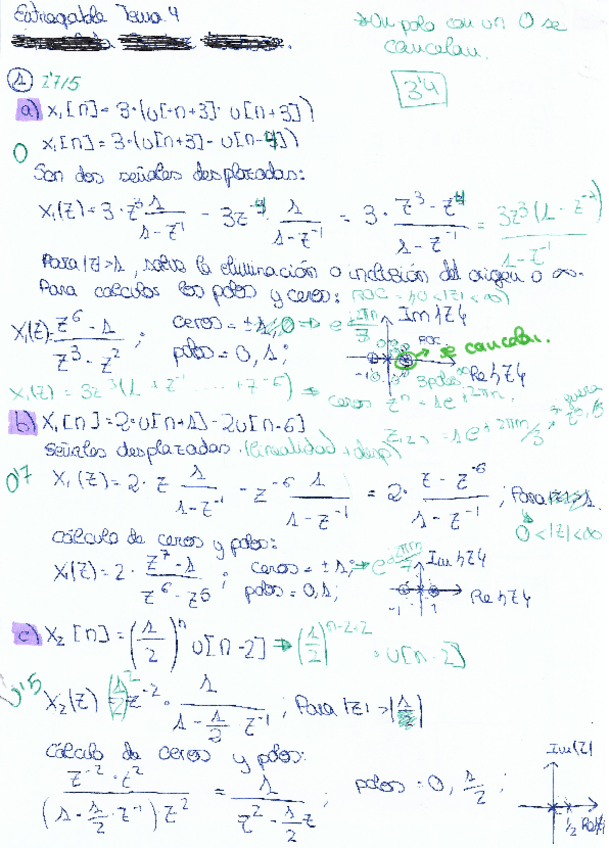 Entregable Tema 4
*Un polo con un 0 se cancelan.
3'4
① 1'75
a) x₁[n] = 3·(u[-n+3]· u[n+3])
0
x₁[n] = 3·(u[n+3] - u[n-4])
Son dos señales desplazadas:
X₁(z) = 3·z³ 1/(1-z⁻¹) - 3z⁻⁴ · 1/(1-z⁻¹) = 3· (z³-z⁻⁴)/(1-z⁻¹) = 3z³(1-z⁻⁷)/(1-z⁻¹)
Para |z|>1, salvo la eliminación o inclusión del origen o ∞.
Para cálculos los polos y ceros: ROC = {0<|z|<∞}
X₁(z) = (z⁶-1)/(z³-z²) ; ceros = ±1; polos = 0, 1;
Im{z}
ROC
se cancelan.
3 polos
Re{z}
X₁(z) = 3z³(1+z⁻¹ ..... +z⁻⁶) ⇒ ceros
b) x₁[n] = 2·u[n+1] - 2u[n-6]
señales desplazadas. (linealidad + desp)
0'7
X₁(z) = 2· z 1/(1-z⁻¹) - z⁻⁶ 1/(1-z⁻¹) = 2· (z-z⁻⁶)/(1-z⁻¹) ; Para |z|>1.
0<|z|<∞
cálculo de ceros y polos:
X₁(z) = 2· (z⁷-1)/(z⁶-z⁵) ; ceros = ±1; polos = 0, 1;
Im{z}
-1 1
Re{z}
c) x₂[n] = (1/2)ⁿ u[n-2] ⇒ (1/2)ⁿ⁻²⁺² · u[n-2]
0'5
X₂(z) (1/2)² z⁻² · 1/(1-1/2·z⁻¹) ; Para |z|>|1/2|
Cálculo de ceros y polos:
(z⁻²·z²)/((1-1/2·z⁻¹)z²) = 1/(z²-1/2z) ; polos = 0, 1/2 ;
Im{z}
1/2 Re{z}